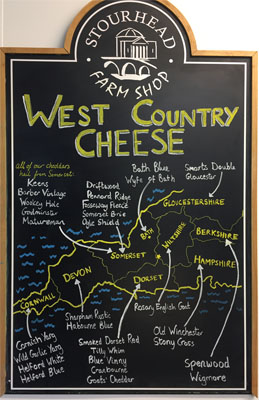 STOURHEAD
FARM SHOP
WEST COUNTRY
CHEESE
all of our cheddars
hail from Somerset:
Keens
Barber Vintage
Wookey Hole
Godminster
Matureman
Driftwood
Pennard Ridge
Fosseway Fleece
Somerset Brie
Ogle Shield
Bath Blue
Wyfe of Bath
Smarts Double
Gloucester
GLOUCESTERSHIRE
BERKSHIRE
HAMPSHIRE
WILTSHIRE
BATH
SOMERSET
DORSET
DEVON
CORNWALL
Cornish Yarg
Wild Garlic Yarg
Helford White
Helford Blue
Sharpham Rustic
Harbourne Blue
Smoked Dorset Red
Tilly Whim
Blue Vinny
Cranbourne
Goats' Cheddar
Rosary English Goat
Old Winchester
Stoney Cross
Spenwood
Wigmore